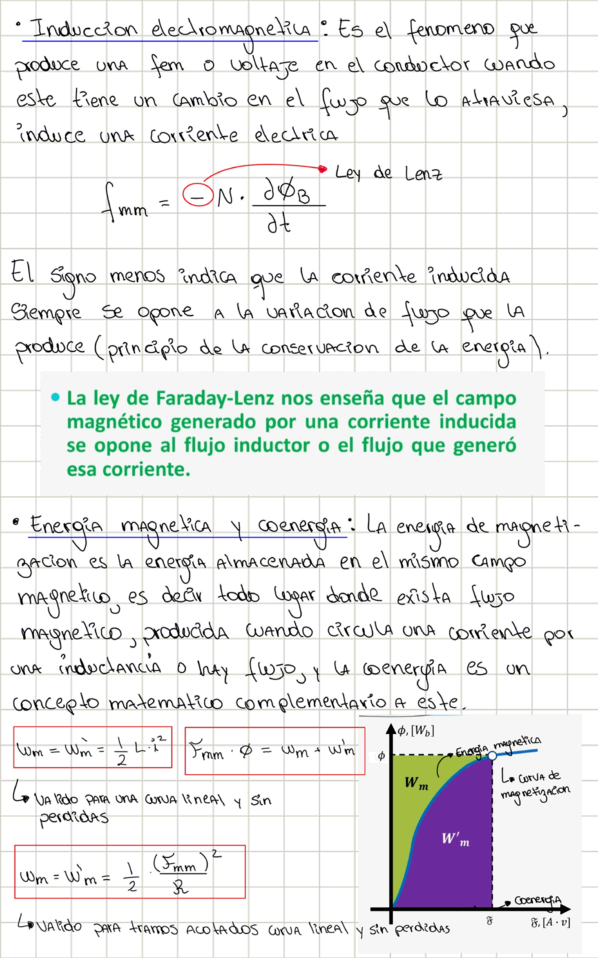 • Induccion electromagnetica: Es el fenomeno que
produce una fem o voltaje en el conductor cuando
este tiene un cambio en el flujo que lo atraviesa,
induce una corriente electrica
Ley de Lenz
fmm = - N · ∂ϕB / ∂t
El signo menos indica que la corriente inducida
siempre se opone a la variacion de flujo que la
produce (principio de la conservacion de la energia).
• La ley de Faraday-Lenz nos enseña que el campo
magnético generado por una corriente inducida
se opone al flujo inductor o el flujo que generó
esa corriente.
• Energia magnetica y coenergia: La energia de magneti-
zacion es la energia almacenada en el mismo campo
magnetico, es decir todo lugar donde exista flujo
magnetico, producida cuando circula una corriente por
una inductancia o hay flujo, y la coenergia es un
concepto matematico complementario a este.
ωm = ω'm = 1/2 L · i²
Fmm · ϕ = ωm + ω'm
↳ Valido para una curva lineal y sin
perdidas
ωm = ω'm = 1/2 · (Fmm)² / R
↳ Valido para tramos acotados curva lineal y sin perdidas
ϕ, [Wb]
ϕ
Energia magnetica
Wm
↳ curva de
magnetizacion
W'm
Coenergia
𝔉
𝔉, [A · v]